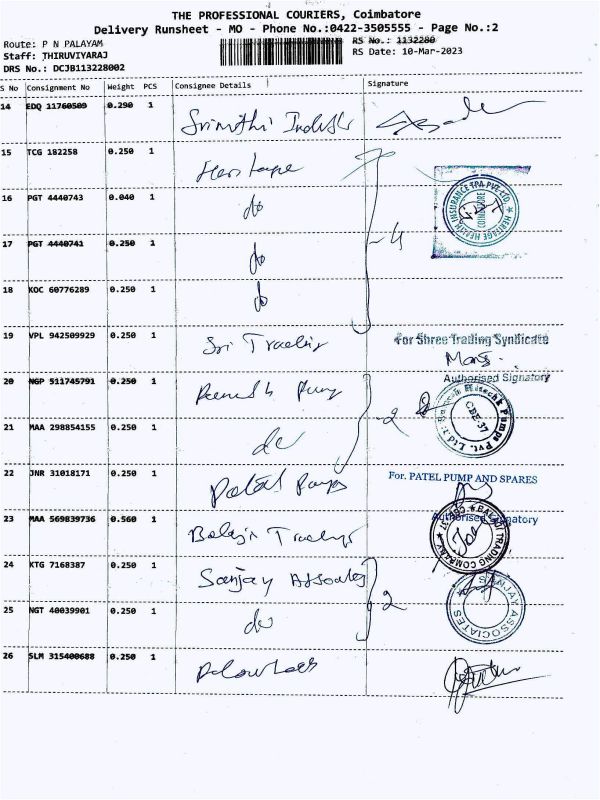 THE PROFESSIONAL COURIERS, Coimbatore
Delivery Runsheet - MO - Phone No.:0422-3505555 - Page No.:2
Route: P N PALAYAM
RS No.: 1132280
Staff: THIRUVIYARAJ
RS Date: 10-Mar-2023
DRS No.: DCJB113228002
S No Consignment No Weight PCS Consignee Details Signature
14 EDQ 11760509 0.290 1
15 TCG 182258 0.250 1
16 PGT 4440743 0.040 1 do
HERITAGE HEALTH INSURANCE TPA PVT. LTD.
COIMBATORE
17 PGT 4440741 0.250 1 do
18 KOC 60776289 0.250 1 do
4
19 VPL 942509929 0.250 1 Sri Trading
For Shree Trading Syndicate
Authorised Signatory
20 NGP 511745791 0.250 1
Hitechk Pumps Pvt. Ltd.
CBE-37
21 MAA 298854155 0.250 1 do
2
22 JNR 31018171 0.250 1 Patel Pumps
For. PATEL PUMP AND SPARES
Authorised Signatory
23 MAA 569839736 0.560 1 Balaji Traders
BALAJI TRADING COMPANY
24 KTG 7168387 0.250 1 Sanjay Assoates
SANJAY ASSOCIATES
25 NGT 40039901 0.250 1 do
2
26 SLM 315400688 0.250 1